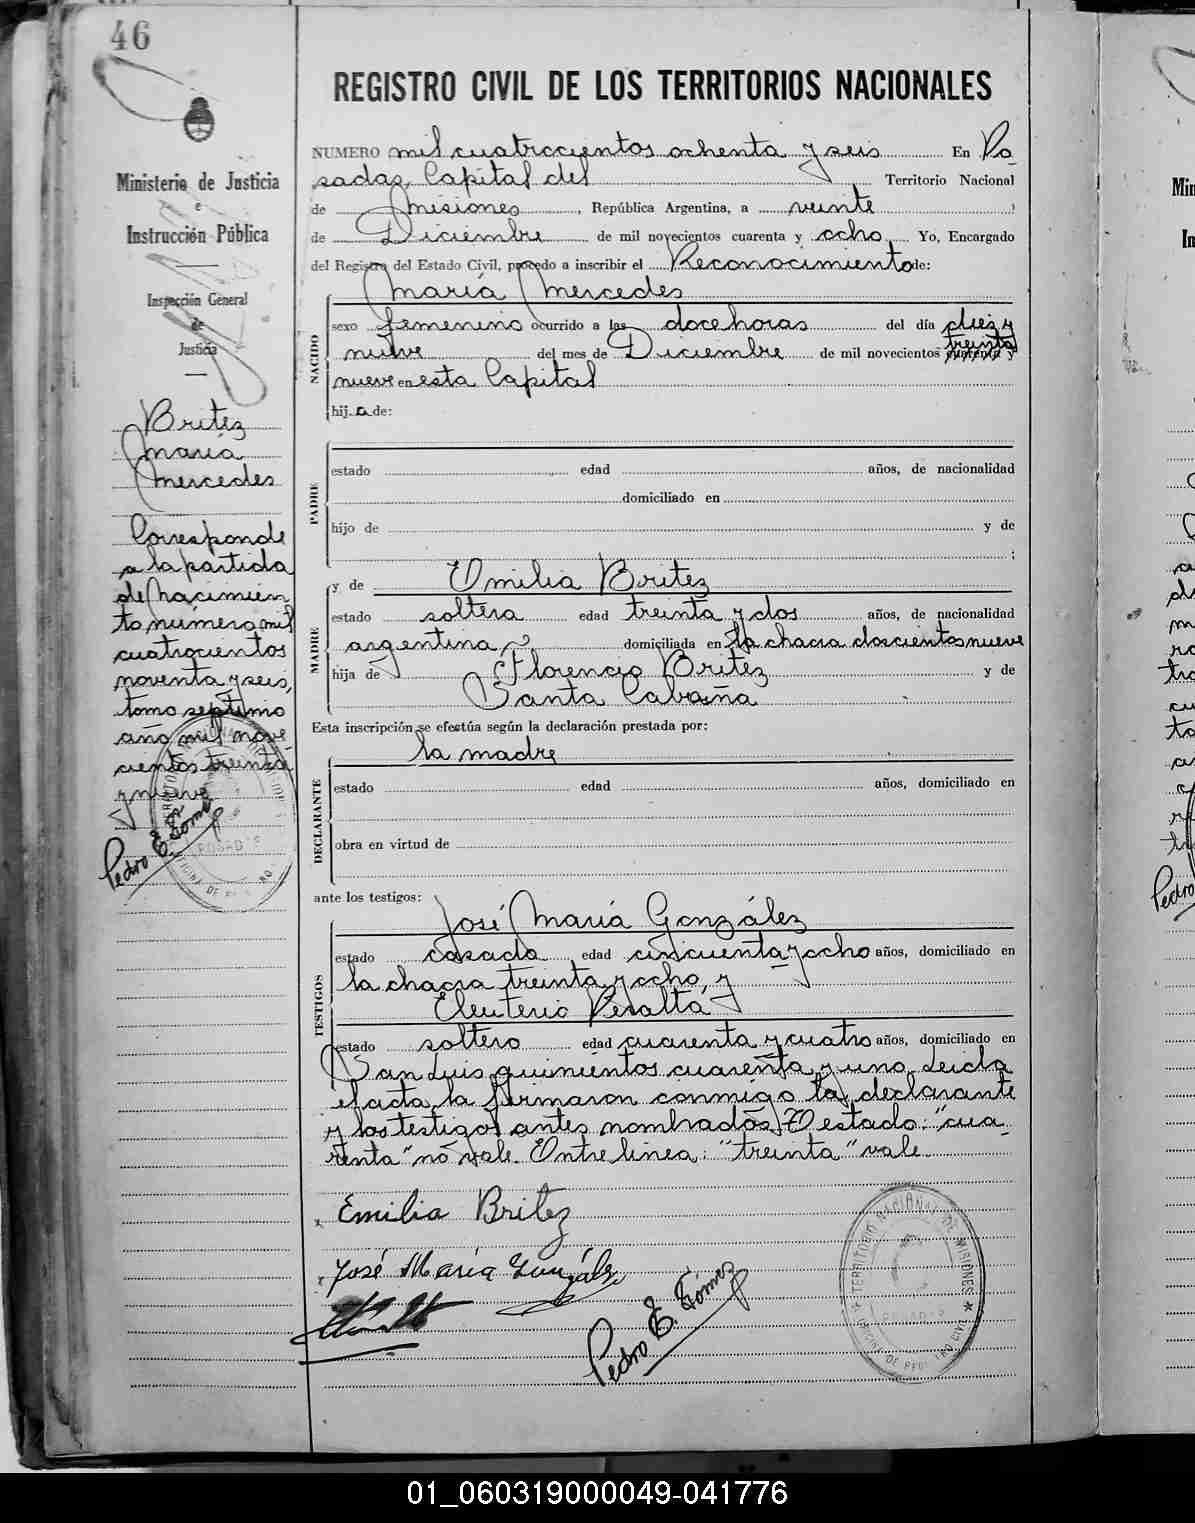 46
REGISTRO CIVIL DE LOS TERRITORIOS NACIONALES
Ministerio de Justicia
e
Instrucción Pública
Inspección General
de
Justicia
Britez
María
Mercedes
Corresponde
a la partida
de nacimien
to número mil
cuatrocientos
noventa y seis,
tomo septimo
año mil nove-
cientos treinta
y nueve
Pedro E. Gómez
NUMERO mil cuatrocientos ochenta y seis En Po-
sadas, Capital del Territorio Nacional
de Misiones, República Argentina, a veinte
de Diciembre de mil novecientos cuarenta y ocho. Yo, Encargado
del Registro del Estado Civil, procedo a inscribir el Reconocimiento de:
María Mercedes
NACIDO
sexo femenino ocurrido a las doce horas del día diez y
nueve del mes de Diciembre de mil novecientos treinta cuarenta y
nueve en esta Capital
hija de:
PADRE
estado edad años, de nacionalidad
domiciliado en
hijo de y de
;
MADRE
y de Emilia Britez
estado soltera edad treinta y dos años, de nacionalidad
argentina, domiciliada en la chacra doscientos nueve
hija de Florencio Britez y de
Santa Cabaña
Esta inscripción se efectúa según la declaración prestada por:
la madre
DECLARANTE
estado edad años, domiciliado en
obra en virtud de
ante los testigos:
José María González
TESTIGOS
estado casado edad cincuenta y ocho años, domiciliado en
la chacra treinta y ocho, y
Eleuterio Peralta
estado soltero edad cuarenta y cuatro años, domiciliado en
San Luis quinientos cuarenta y uno. Leida
el acta, la firmaron conmigo la declarante
y los testigos antes nombrados. Testado: "cua-
renta" no vale. Entre linea: "treinta" vale.
Emilia Britez
José María González
Pedro E. Gómez
TERRITORIO NACIONAL DE MISIONES
POSADAS
OFICINA DE REGISTRO CIVIL
01_060319000049-041776